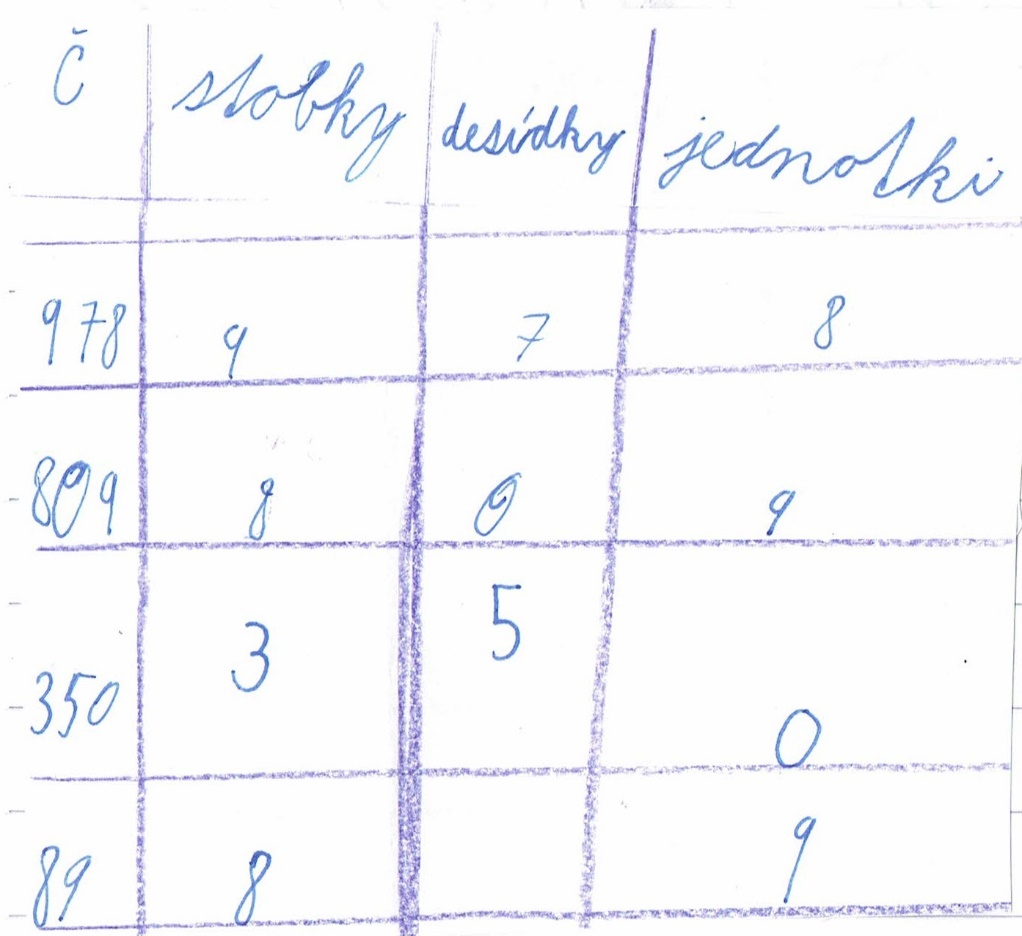 Č stobky desídky jednotki
978 9 7 8
809 8 0 9
350 3 5 0
89 8 9